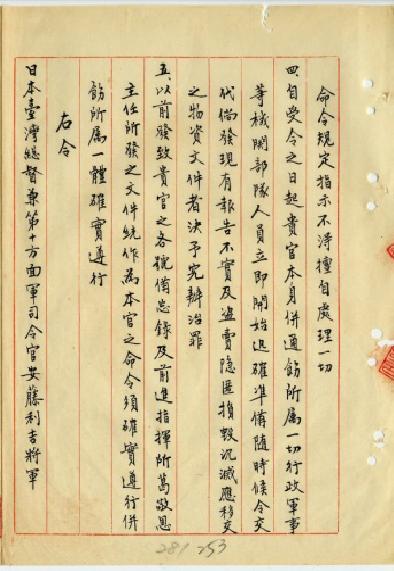 命令規定指示不得擅自處理一切
四、自受令之日起貴官本身併通飭所属一切行政軍事
等機関部隊人員立即開始迅確準備隨時候令交
代倘發現有報告不實及盜賣隐匿損毀沉滅應移交
之物資文件者決予究辦治罪
五、以前發致貴官之各號備忘錄及前進指揮所葛敬恩
主任所發之文件統作為本官之命令須確實遵行併
飭所属一體確實遵行
右令
日本臺灣總督兼第十方面軍司令官安藤利吉將軍
281 253